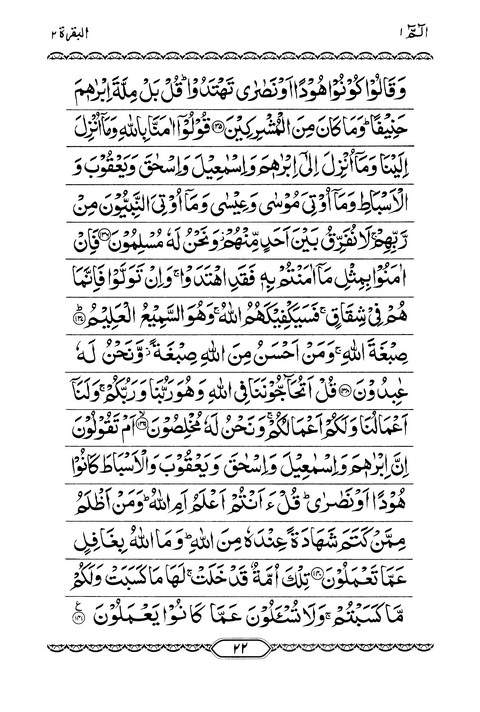 الٓمّٓ ١ البقرة ٢
وَقَالُوْا كُوْنُوْا هُوْدًا اَوْ نَصٰرٰى تَهْتَدُوْاؕ قُلْ بَلْ مِلَّةَ اِبْرٰهٖمَ
حَنِيْفًاؕ وَمَا كَانَ مِنَ الْمُشْرِكِيْنَ ﴿۱۳۵﴾ قُوْلُوْٓا اٰمَنَّا بِاللّٰهِ وَمَآ اُنْزِلَ
اِلَيْنَا وَمَآ اُنْزِلَ اِلٰٓى اِبْرٰهٖمَ وَاِسْمٰعِيْلَ وَاِسْحٰقَ وَيَعْقُوْبَ وَ
الْاَسْبَاطِ وَمَآ اُوْتِيَ مُوْسٰى وَعِيْسٰى وَمَآ اُوْتِيَ النَّبِيُّوْنَ مِنْ
رَّبِّهِمْۚ لَا نُفَرِّقُ بَيْنَ اَحَدٍ مِّنْهُمْؗ وَنَحْنُ لَهٗ مُسْلِمُوْنَ ﴿۱۳۶﴾ فَاِنْ
اٰمَنُوْا بِمِثْلِ مَآ اٰمَنْتُمْ بِهٖ فَقَدِ اهْتَدَوْاۚ وَاِنْ تَوَلَّوْا فَاِنَّمَا
هُمْ فِيْ شِقَاقٍۚ فَسَيَكْفِيْكَهُمُ اللّٰهُۚ وَهُوَ السَّمِيْعُ الْعَلِيْمُؕ ﴿۱۳۷﴾
صِبْغَةَ اللّٰهِۚ وَمَنْ اَحْسَنُ مِنَ اللّٰهِ صِبْغَةًؗ وَّنَحْنُ لَهٗ
عٰبِدُوْنَ ﴿۱۳۸﴾ قُلْ اَتُحَآجُّوْنَنَا فِي اللّٰهِ وَهُوَ رَبُّنَا وَرَبُّكُمْۚ وَلَنَآ
اَعْمَالُنَا وَلَكُمْ اَعْمَالُكُمْۚ وَنَحْنُ لَهٗ مُخْلِصُوْنَۙ ﴿۱۳۹﴾ اَمْ تَقُوْلُوْنَ
اِنَّ اِبْرٰهٖمَ وَاِسْمٰعِيْلَ وَاِسْحٰقَ وَيَعْقُوْبَ وَالْاَسْبَاطَ كَانُوْا
هُوْدًا اَوْ نَصٰرٰىؕ قُلْ ءَاَنْتُمْ اَعْلَمُ اَمِ اللّٰهُؕ وَمَنْ اَظْلَمُ
مِمَّنْ كَتَمَ شَهَادَةً عِنْدَهٗ مِنَ اللّٰهِؕ وَمَا اللّٰهُ بِغَافِلٍ
عَمَّا تَعْمَلُوْنَ ﴿۱۴۰﴾ تِلْكَ اُمَّةٌ قَدْ خَلَتْۚ لَهَا مَا كَسَبَتْ وَلَكُمْ
مَّا كَسَبْتُمْۚ وَلَا تُسْـَٔلُوْنَ عَمَّا كَانُوْا يَعْمَلُوْنَ ﴿۱۴۱﴾ ع
٢٢